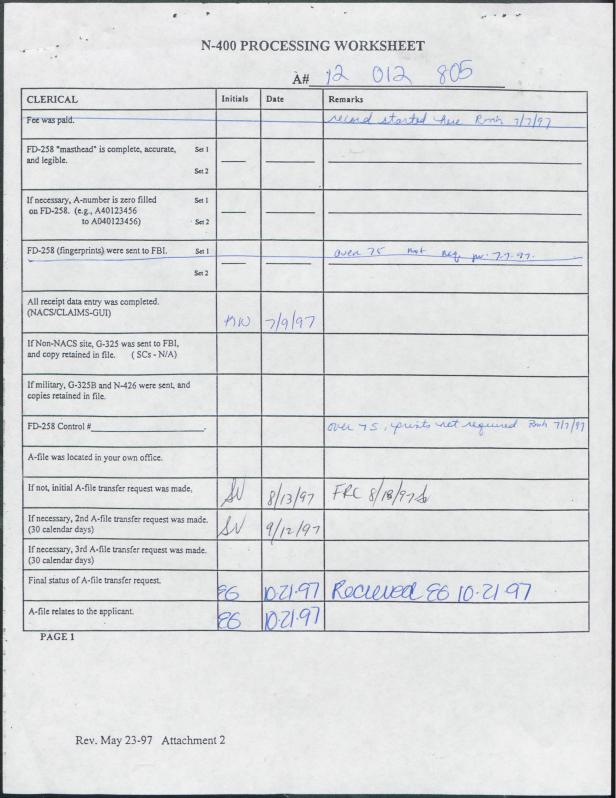 N-400 PROCESSING WORKSHEET
A# 12 012 805
CLERICAL Initials Date Remarks
Fee was paid. record started here Rmh 7/7/97
FD-258 "masthead" is complete, accurate, Set 1
and legible.
Set 2
If necessary, A-number is zero filled Set 1
on FD-258. (e.g., A40123456
to A040123456) Set 2
FD-258 (fingerprints) were sent to FBI. Set 1 over 75 not req. 7-7-97.
Set 2
All receipt data entry was completed.
(NACS/CLAIMS-GUI) 7/9/97
If Non-NACS site, G-325 was sent to FBI,
and copy retained in file. ( SCs - N/A)
If military, G-325B and N-426 were sent, and
copies retained in file.
FD-258 Control #. over 75, prints not required Rmh 7/7/97
A-file was located in your own office.
If not, initial A-file transfer request was made. SV 8/13/97 FRC 8/13/97
If necessary, 2nd A-file transfer request was made. SV 9/12/97
(30 calendar days)
If necessary, 3rd A-file transfer request was made.
(30 calendar days)
Final status of A-file transfer request. EG 10-21-97 Recieved EG 10-21-97
A-file relates to the applicant. EG 10-21-97
PAGE 1
Rev. May 23-97 Attachment 2